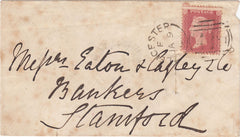 CESTER
Messrs Eaton & Cayley Co
Bankers
Stamford